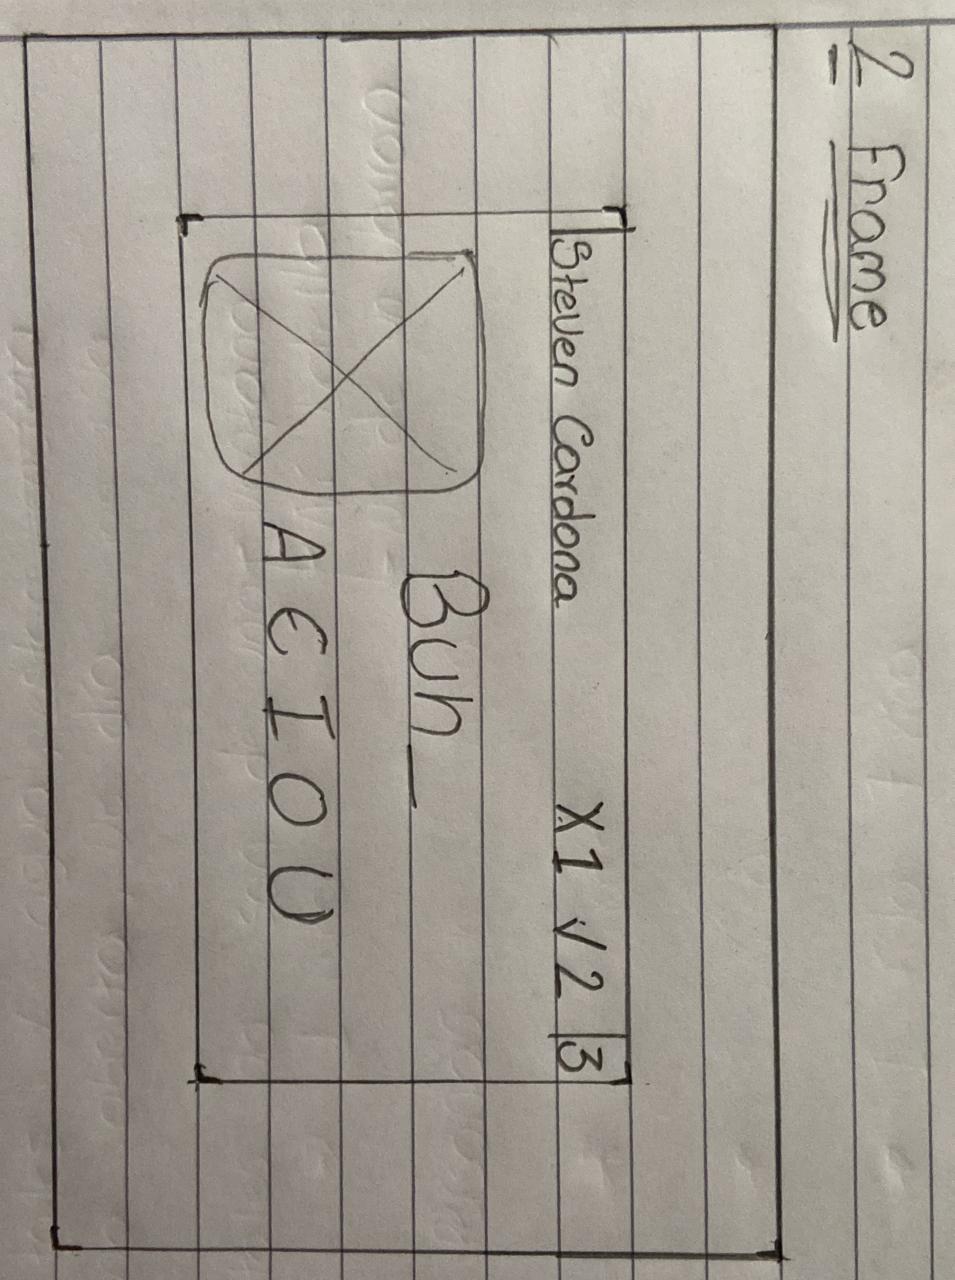 2 Frame
Steven Cardona X1 √2 3
Buh_
A E I O U